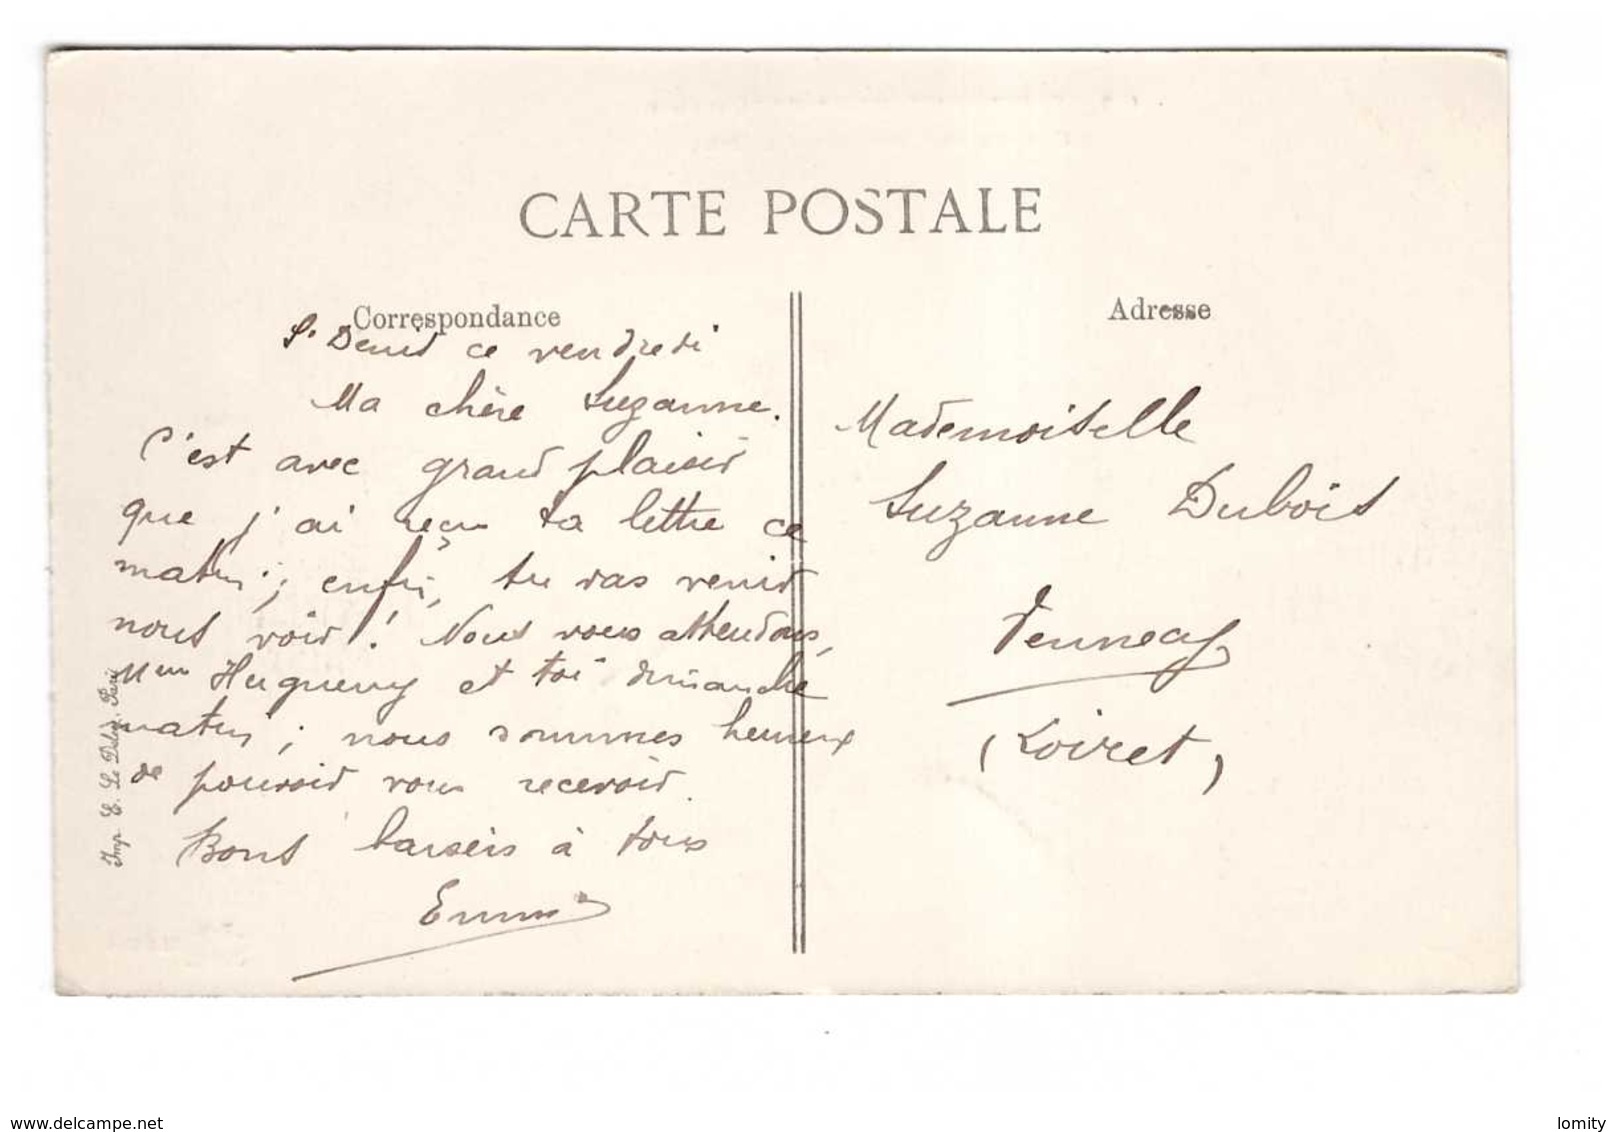 CARTE POSTALE
Correspondance
St Denis ce vendredi
Ma chère Suzanne.
C'est avec grand plaisir
que j'ai reçu ta lettre ce
matin ; enfin, tu vas venir
nous voir ! Nous vous attendons,
Mme Hugueny et toi dimanche
matin ; nous sommes heureux
de pouvoir vous recevoir.
Bons baisers à tous
Emma
Imp. E. Le Deley, Paris
Adresse
Mademoiselle
Suzanne Dubois
(Loiret)
www.delcampe.net
lomity